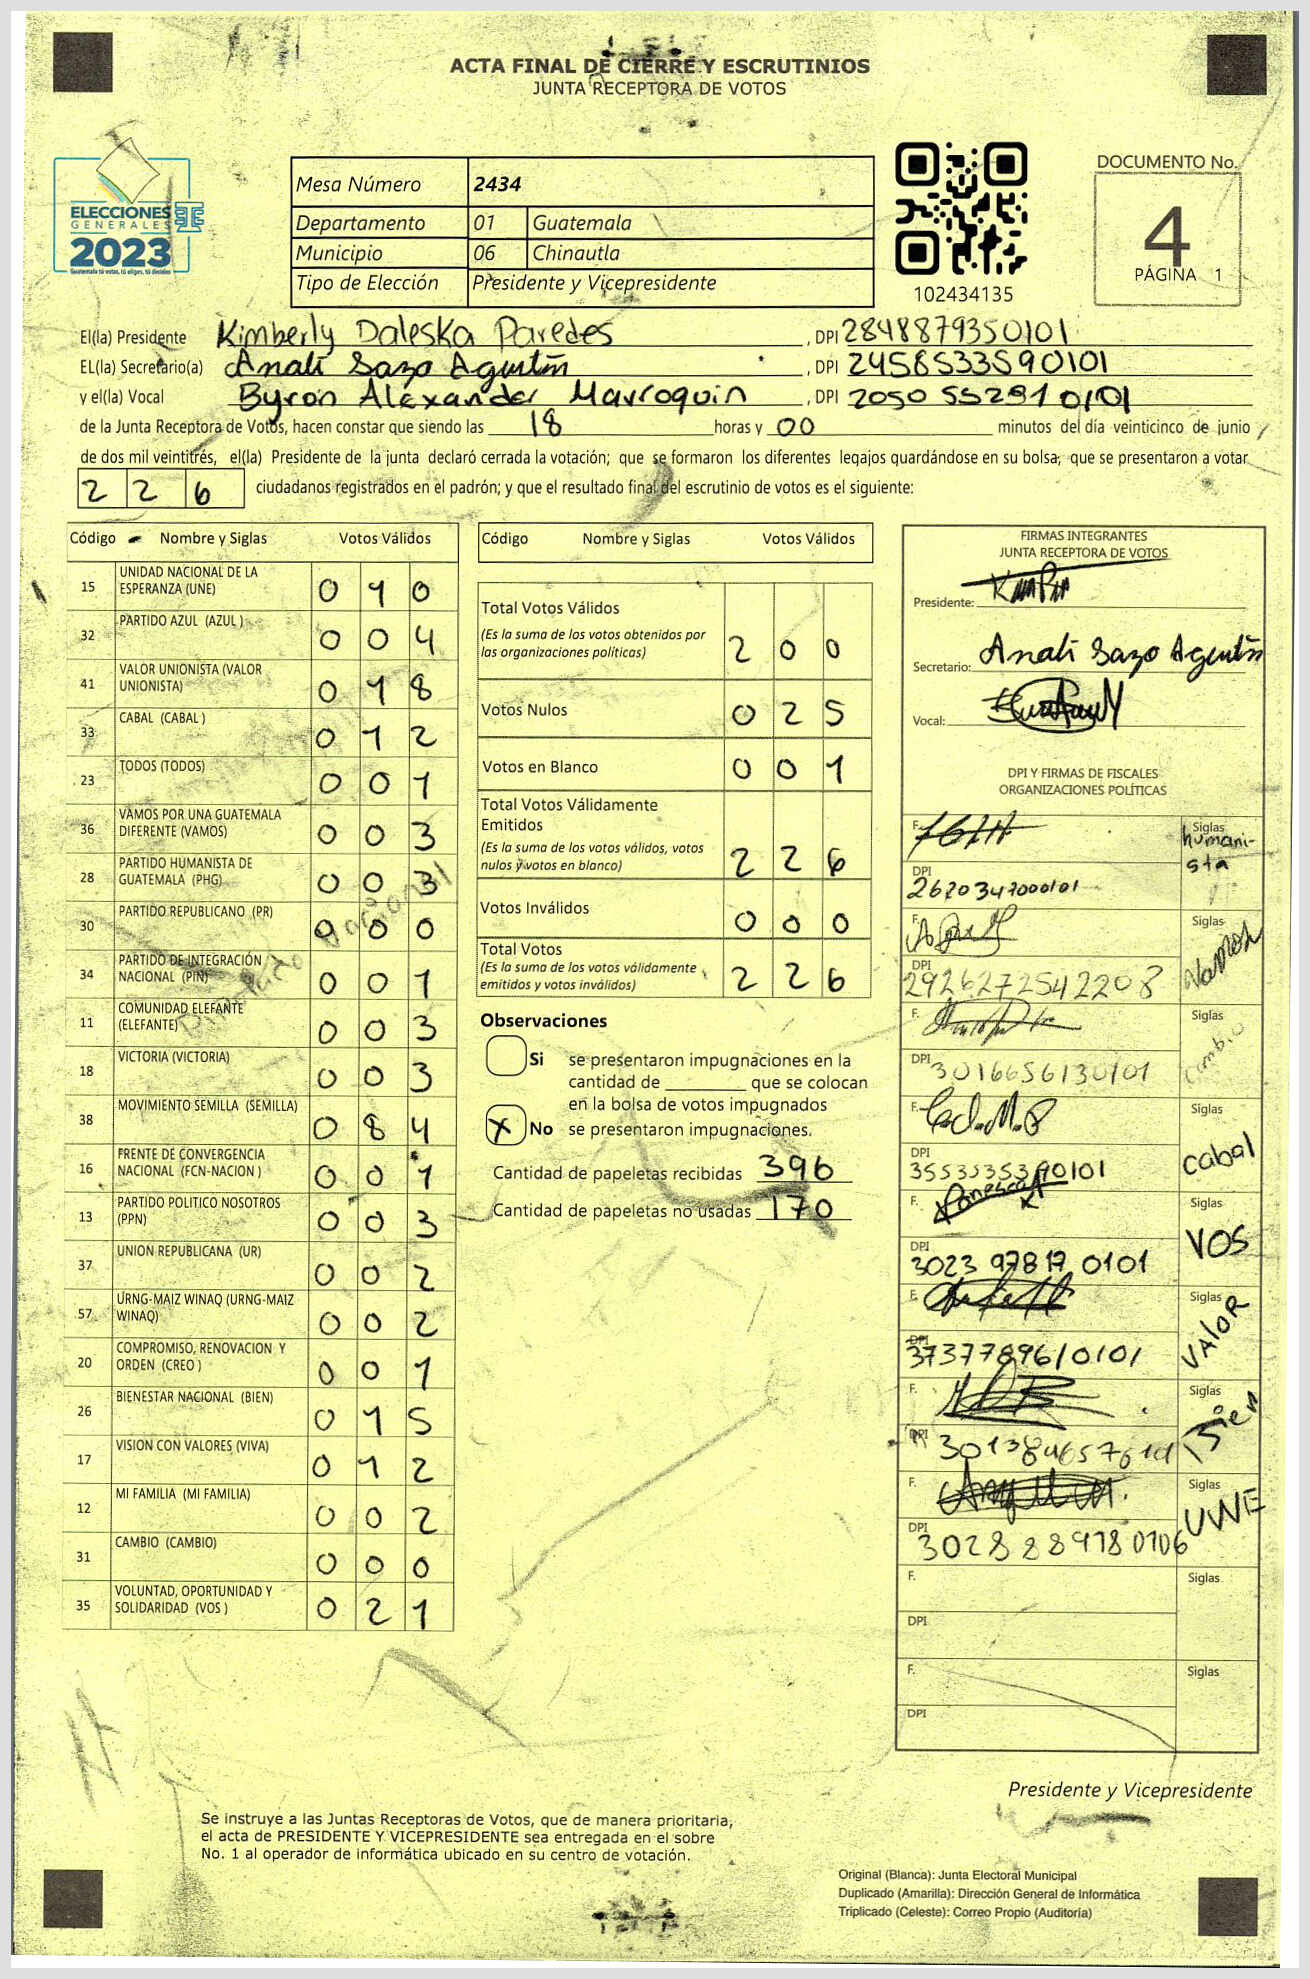 ACTA FINAL DE CIERRE Y ESCRUTINIOS
JUNTA RECEPTORA DE VOTOS
ELECCIONES
GENERALES
2023
Guatemala tú votas, tú eliges, tú decides
Mesa Número 2434
Departamento 01 Guatemala
Municipio 06 Chinautla
Tipo de Elección Presidente y Vicepresidente
102434135
DOCUMENTO No.
4
PÁGINA 1
El(la) Presidente Kimberly Daleska Paredes , DPI 2848879350101
EL(la) Secretario(a) Analí Sazo Agustín , DPI 2458533590101
y el(la) Vocal Byron Alexander Marroquin , DPI 2050 55291 0101
de la Junta Receptora de Votos, hacen constar que siendo las 18 horas y 00 minutos del día veinticinco de junio
de dos mil veintitrés, el(la) Presidente de la junta declaró cerrada la votación; que se formaron los diferentes legajos guardándose en su bolsa; que se presentaron a votar
226 ciudadanos registrados en el padrón; y que el resultado final del escrutinio de votos es el siguiente:
Código Nombre y Siglas Votos Válidos
15 UNIDAD NACIONAL DE LA ESPERANZA (UNE) 0 1 0
32 PARTIDO AZUL (AZUL ) 0 0 4
41 VALOR UNIONISTA (VALOR UNIONISTA) 0 1 8
33 CABAL (CABAL ) 0 1 2
23 TODOS (TODOS) 0 0 1
36 VAMOS POR UNA GUATEMALA DIFERENTE (VAMOS) 0 0 3
28 PARTIDO HUMANISTA DE GUATEMALA (PHG) 0 0 3
30 PARTIDO REPUBLICANO (PR) 0 0 0
34 PARTIDO DE INTEGRACIÓN NACIONAL (PIN) 0 0 1
11 COMUNIDAD ELEFANTE (ELEFANTE) 0 0 3
18 VICTORIA (VICTORIA) 0 0 3
38 MOVIMIENTO SEMILLA (SEMILLA) 0 8 4
16 FRENTE DE CONVERGENCIA NACIONAL (FCN-NACION ) 0 0 1
13 PARTIDO POLITICO NOSOTROS (PPN) 0 0 3
37 UNION REPUBLICANA (UR) 0 0 2
57 URNG-MAIZ WINAQ (URNG-MAIZ WINAQ) 0 0 2
20 COMPROMISO, RENOVACION Y ORDEN (CREO ) 0 0 1
26 BIENESTAR NACIONAL (BIEN) 0 1 5
17 VISION CON VALORES (VIVA) 0 1 2
12 MI FAMILIA (MI FAMILIA) 0 0 2
31 CAMBIO (CAMBIO) 0 0 0
35 VOLUNTAD, OPORTUNIDAD Y SOLIDARIDAD (VOS ) 0 2 1
Código Nombre y Siglas Votos Válidos
Total Votos Válidos
(Es la suma de los votos obtenidos por
las organizaciones políticas) 2 0 0
Votos Nulos 0 2 5
Votos en Blanco 0 0 1
Total Votos Válidamente
Emitidos
(Es la suma de los votos válidos, votos
nulos y votos en blanco) 2 2 6
Votos Inválidos 0 0 0
Total Votos
(Es la suma de los votos válidamente
emitidos y votos inválidos) 2 2 6
Observaciones
Si se presentaron impugnaciones en la
cantidad de ________ que se colocan
en la bolsa de votos impugnados
X No se presentaron impugnaciones.
Cantidad de papeletas recibidas 396
Cantidad de papeletas no usadas 170
FIRMAS INTEGRANTES
JUNTA RECEPTORA DE VOTOS
Presidente:
Secretario: Analí Sazo Agustín
Vocal:
DPI Y FIRMAS DE FISCALES
ORGANIZACIONES POLÍTICAS
F. Siglas humanista
DPI 2620347000101
F. Siglas Vamos
DPI 2926272542208
F. Siglas Cambio
DPI 3016656130101
F. Siglas Cabal
DPI
F. Siglas VOS
DPI 3023 97817 0101
F. Siglas VALOR
DPI 3737789610101
F. Siglas Bien
DPI
F. Siglas UNE
DPI 3028 88978 0106
F. Siglas
DPI
F. Siglas
DPI
Presidente y Vicepresidente
Se instruye a las Juntas Receptoras de Votos, que de manera prioritaria,
el acta de PRESIDENTE Y VICEPRESIDENTE sea entregada en el sobre
No. 1 al operador de informática ubicado en su centro de votación.
Original (Blanca): Junta Electoral Municipal
Duplicado (Amarilla): Dirección General de Informática
Triplicado (Celeste): Correo Propio (Auditoría)